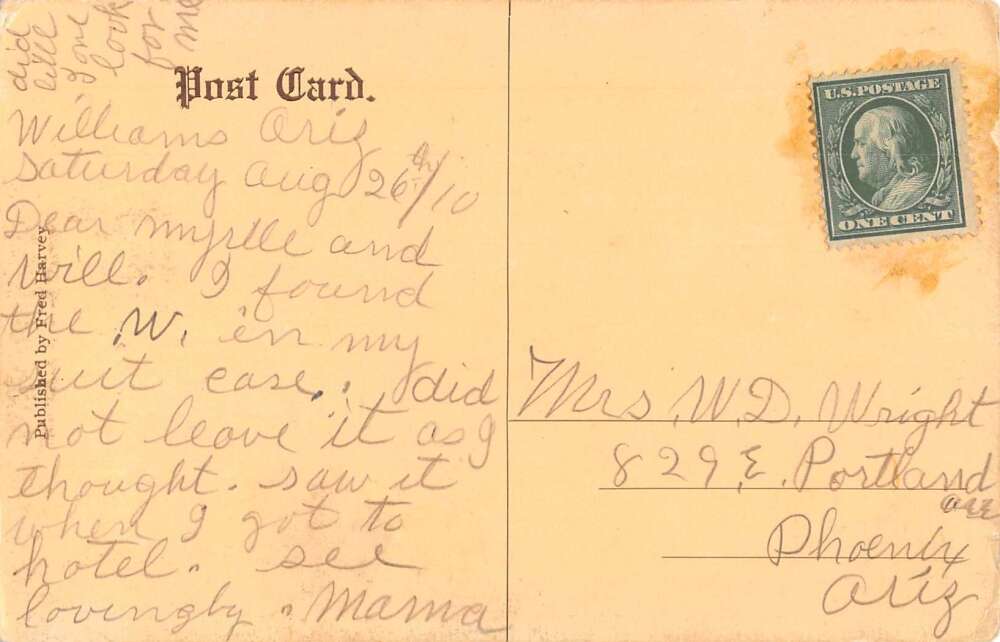 did
one
look
for
me
Post Card.
Williams Ariz
Saturday Aug 26th/10
Dear Myrtle and
Will. I found
the W. in my
suit case. I did
not leave it as I
thought. saw it
when I got to
hotel. see
lovingly. Mama
Published by Fred Harvey
U.S. POSTAGE
ONE CENT
Mrs. W. D. Wright
829, E. Portland
Phoenix
Ariz